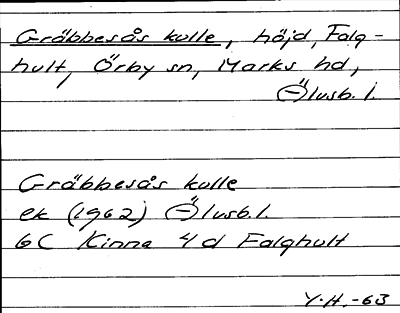 Gräbbesås kulle, höjd, Falq-
hult, Örby sn, Marks hd,
Älvsb. l.
Gräbbesås kulle
ek (1962) Älvsb. l.
6C Kinna 4d Falqhult
Y.H. -63